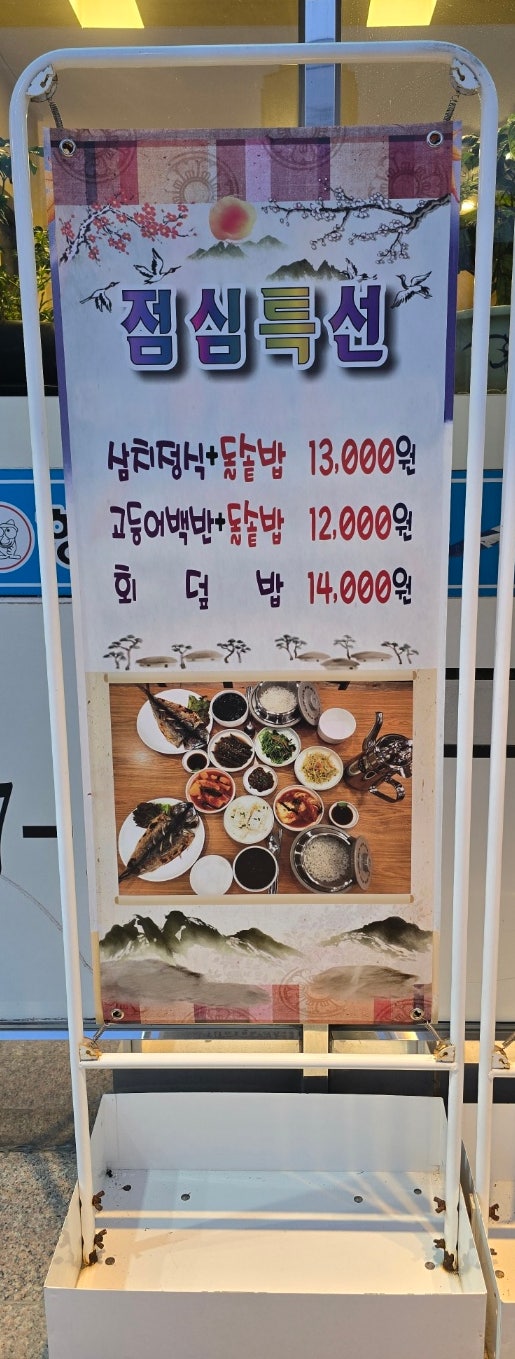 점심특선
삼치정식+돌솥밥 13,000원
고등어백반+돌솥밥 12,000원
회 덮 밥 14,000원